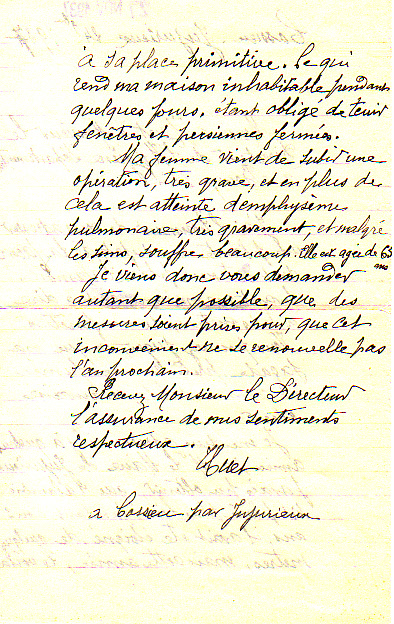 à sa place primitive. Ce qui
rend ma maison inhabitable pendant
quelques jours, étant obligé de tenir
fenêtres et persiennes fermées.
Ma femme vient de subir une
opération, très grave, et en plus de
cela est atteinte d'emphysème
pulmonaire, très gravement et malgré
les soins, souffre beaucoup. Elle est agée de 63
ans
Je viens donc vous demander
autant que possible, que, des
mesures soient prises pour, que cet
inconvénient ne se renouvelle pas
l'an prochain.
Recevez Monsieur le Directeur
l'assurance de mes sentiments
respectueux.
Huet
a par Jujurieux